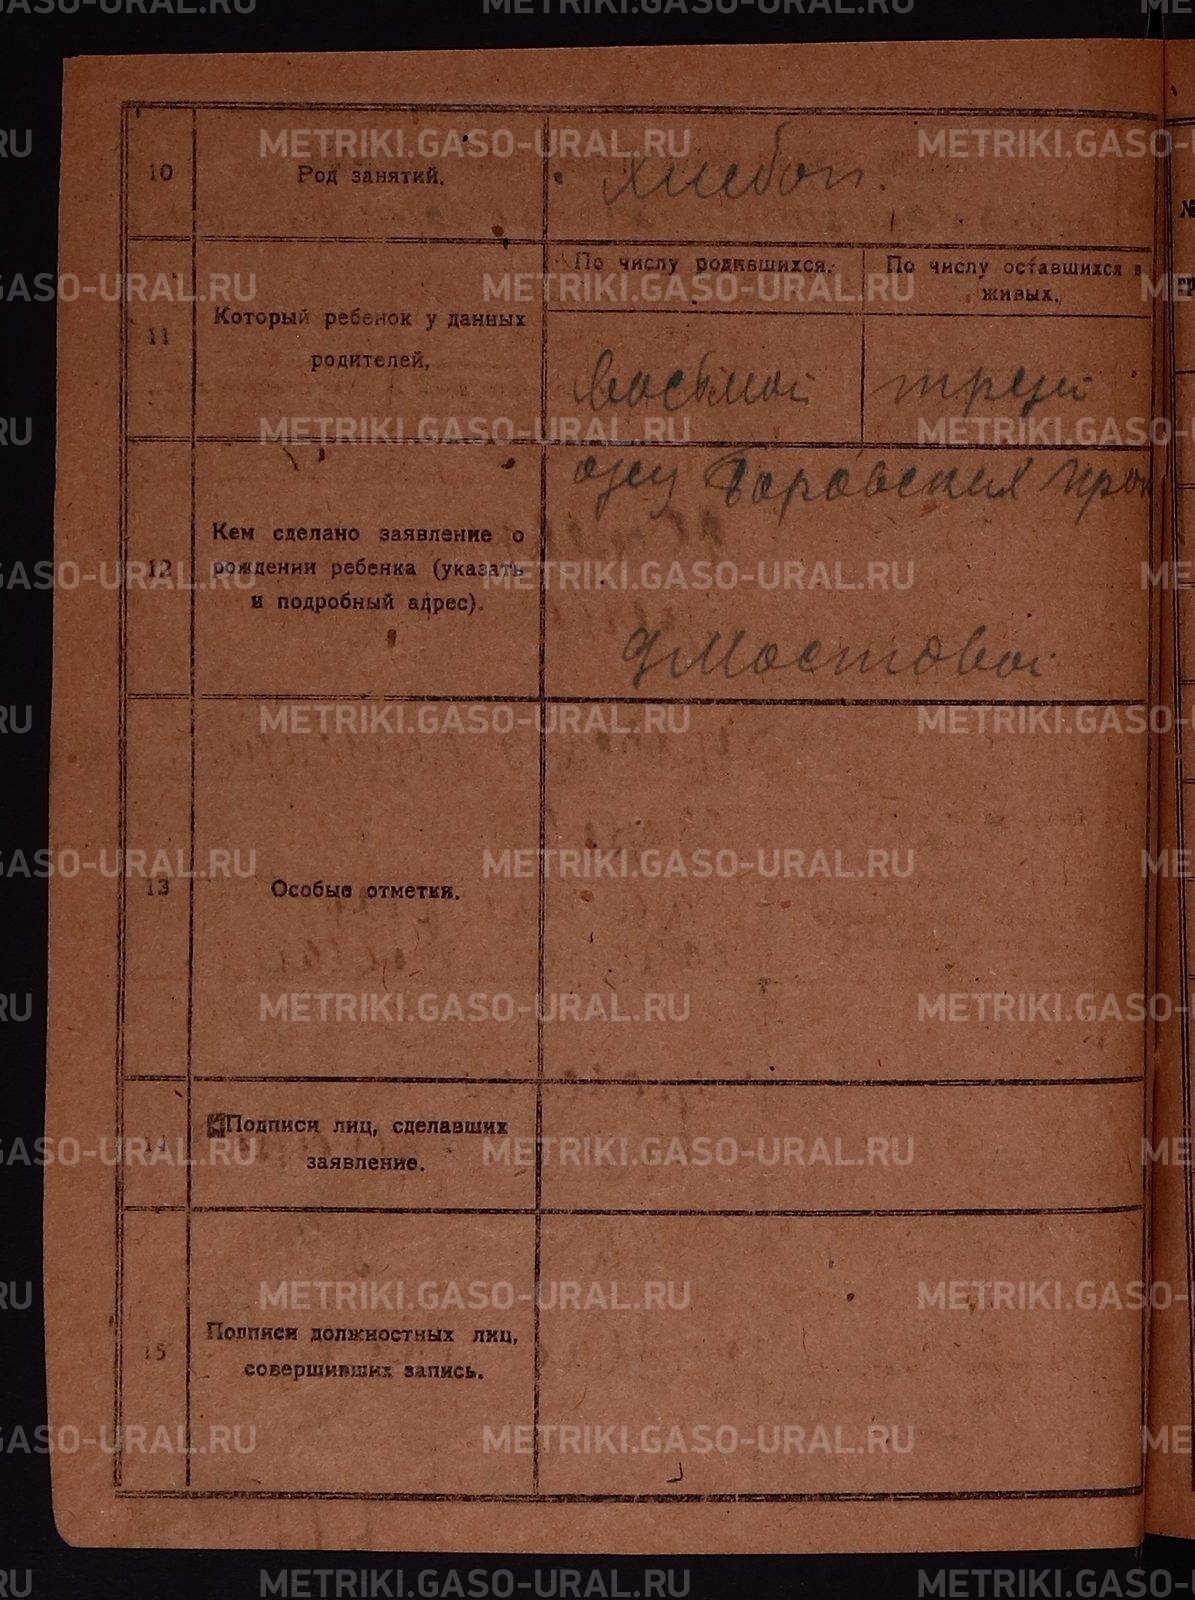 10
Род занятий.
хлебоп.
11
Который ребенок у данных
родителей.
По числу родившихся.
По числу оставшихся в
живых.
восьмой
12
Кем сделано заявление о
рождении ребенка (указать
и подробный адрес).
Боровския
Мостовой
13
Особые отметки.
14
Подписи лиц, сделавших
заявление.
15
Подписи должностных лиц,
совершивших запись.
METRIKI.GASO-URAL.RU